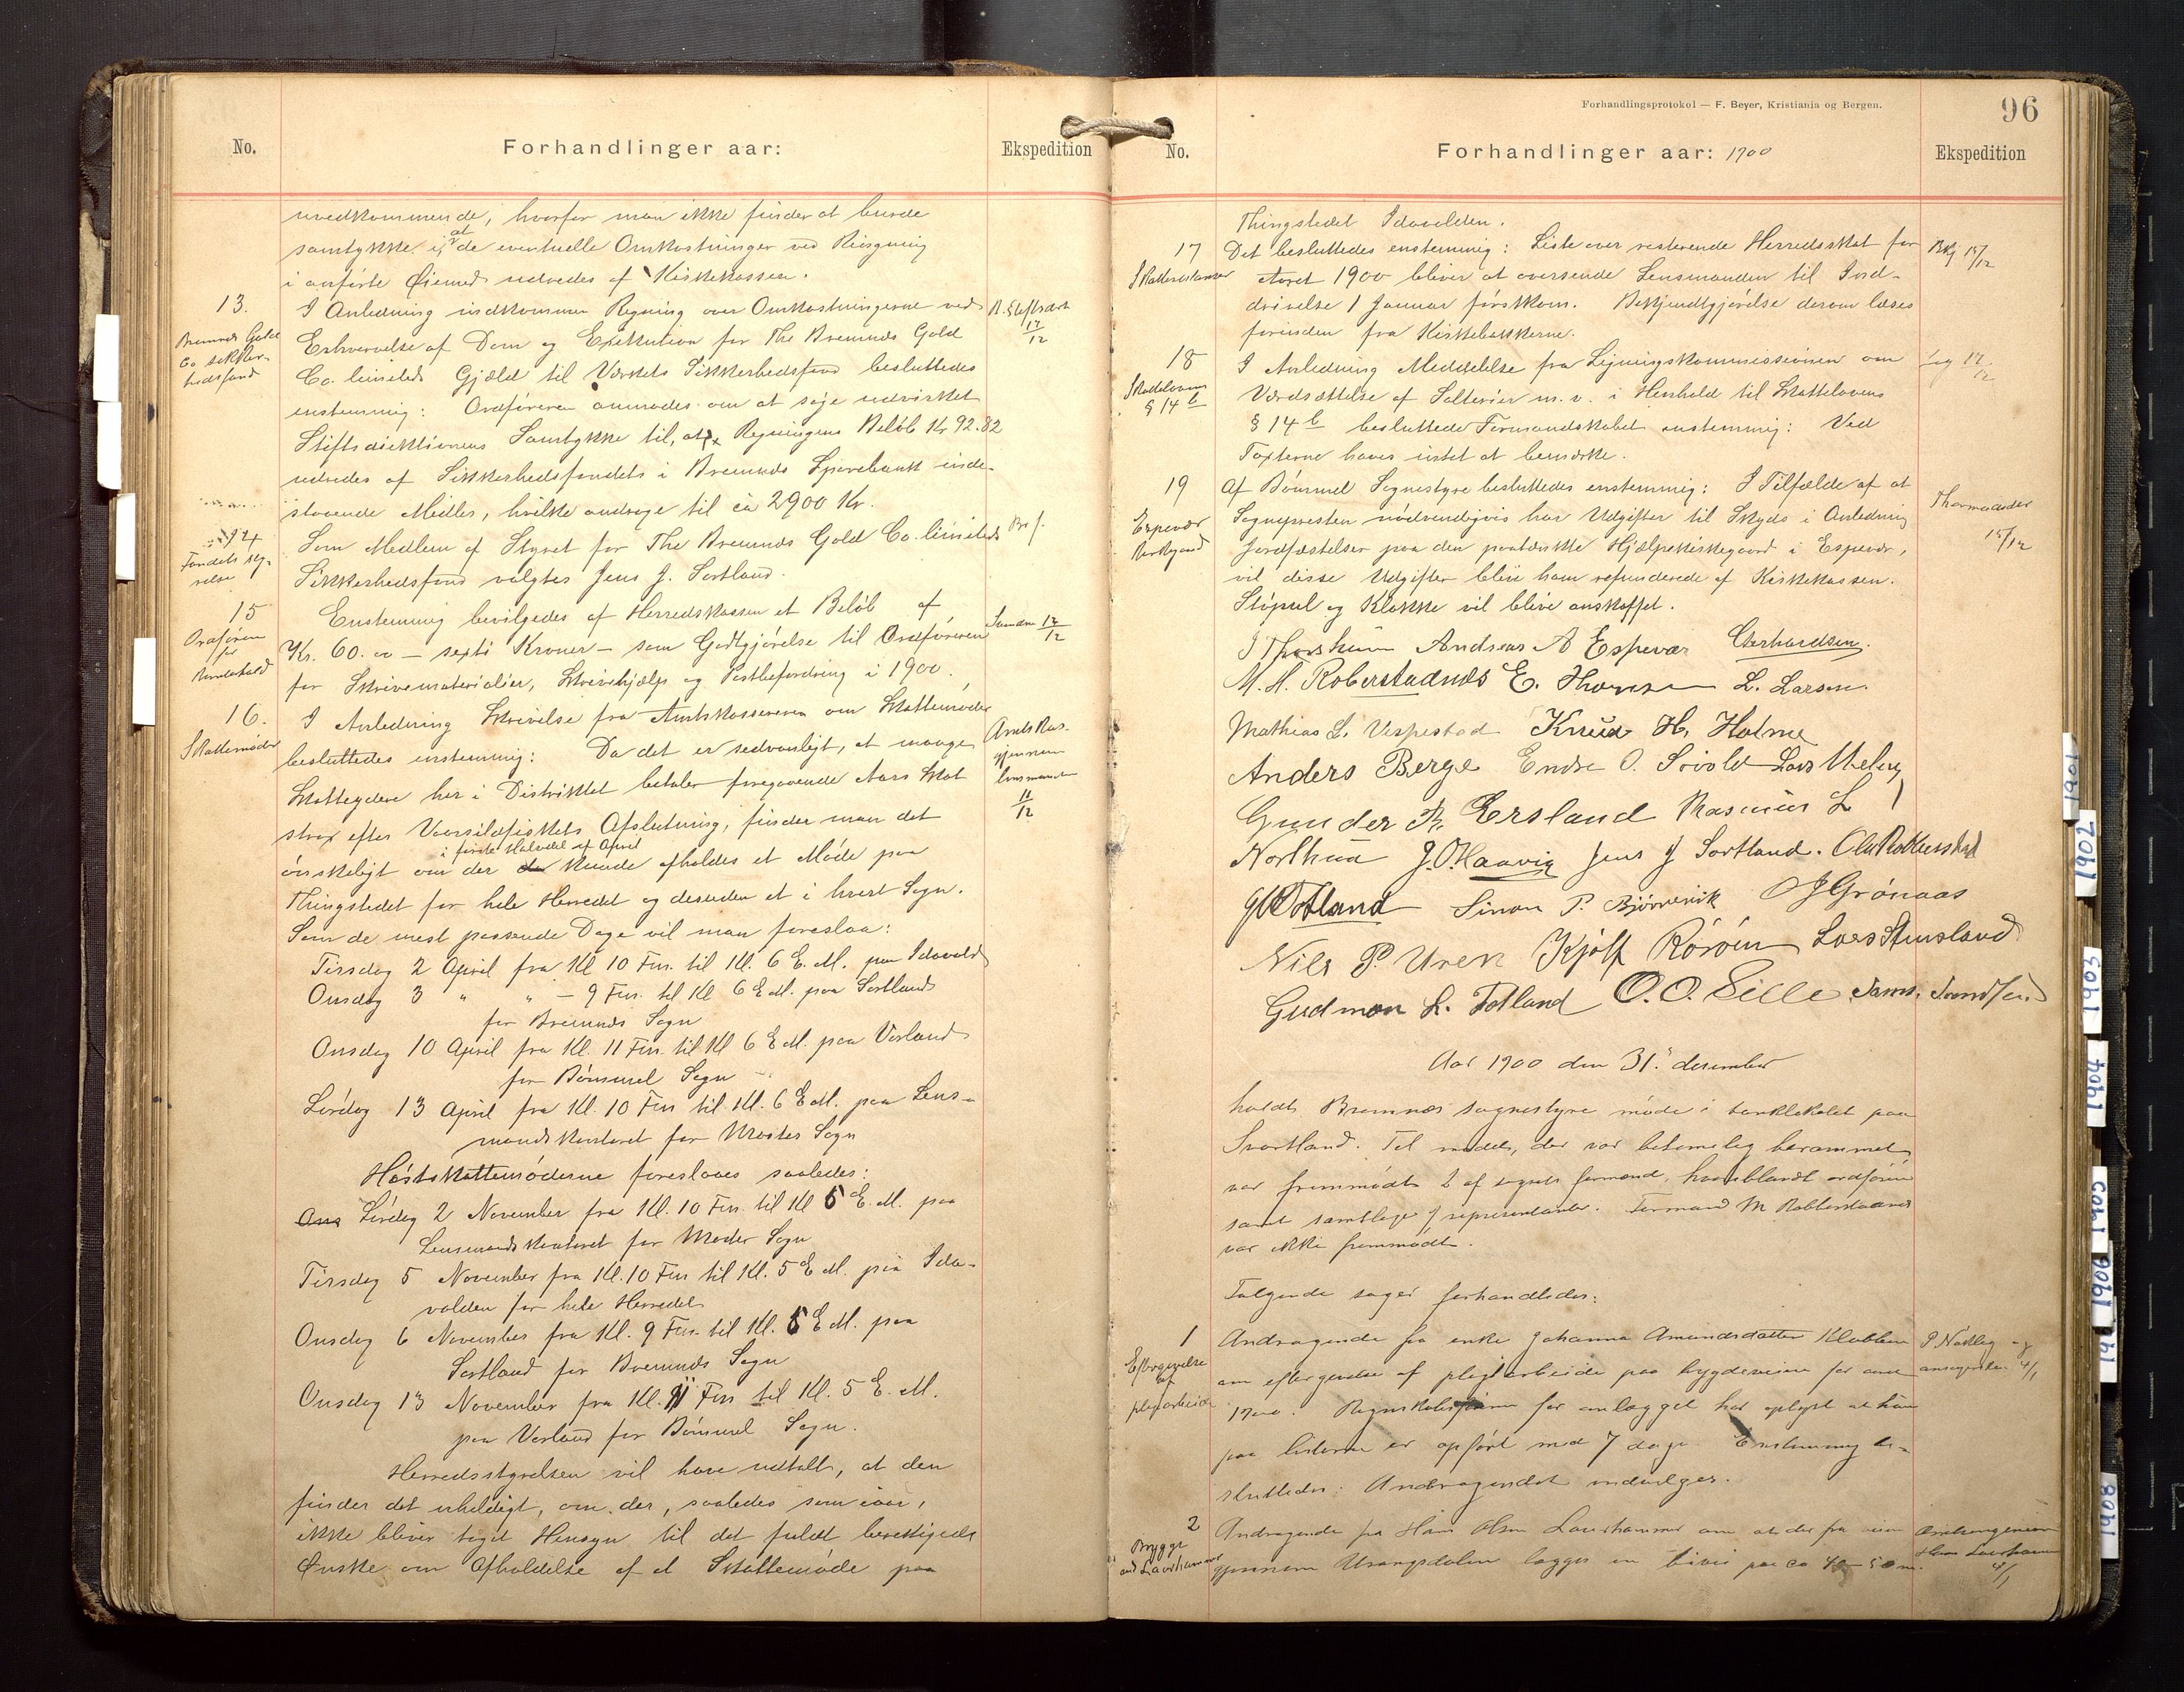 No.
Forhandlinger aar:
Ekspedition
uvedkommende, hvorfor man ikke finder at burde
samtykke i, at de eventuelle Omkostninger ved Reisgning
i anførte Øiemed udredes af Kirkekassen.
13.
Bremnes Gold
Co. sikker-
hedsfond
I Anledning indkommen Regning over Omkostningerne ved
Erhvervelse af Dom og Exekution for The Bremnes Gold
Co. limiteds Gjæld til Værkets Sikkerhedsfond besluttedes
enstemmig: Ordføreren anmodes om at søge udvirket
Stiftsdirektionens Samtykke til, at Regningens Beløb Kr 92.82
udredes af Sikkerhedsfondets i Bremnes Sparebank inde-
staaende Midler, hvilke andrage til ca 2900 Kr.
12/12
14
Fondets sty-
relse
Som Medlem af Styret for The Bremnes Gold Co. limiteds
Sikkerhedsfond valgtes Jens J. Sortland.
15
Ordføreren
for
Kontorhold
Enstemmig bevilgedes af Herredskassen et Beløb af
Kr. 60.00 — sexti Kroner — som Godtgjørelse til Ordføreren
for Skrivematerialier, Skrivehjælp og Postbefordring i 1900.
12/12
16.
Skattemøder
I Anledning Skrivelse fra Amtskassereren om Skattemøder
besluttedes enstemmig: Da det er sedvanligt, at mange
Skatteydere her i Distriktet betaler foregaaende Aars Skat
strax efter Vaarsildfiskets Afslutning, finder man det
i første Halvdel af April
ønskeligt om der kunde afholdes et Møde paa
Thingstedet for hele Herredet og desuden et i hvert Sogn.
Som de mest passende Dage vil man foreslaa:
Amtskas-
gjennem
lensmand
11/12
Tirsdag 2 April fra Kl 10 Fm. til Kl. 6 E. M. paa Idavold
Onsdag 3 " " — 9 Fm. til Kl 6 E M. paa Sortland
for Bremnes Sogn
Onsdag 10 April fra Kl. 11 Fm. til Kl 6 E M. paa Vorland
for Bømmel Sogn
Lørdag 13 April fra Kl. 10 Fm til Kl. 6 E M. paa Lens-
mandskontoret for Moster Sogn
Høstskattemøderne foreslaaes saaledes:
Ons Lørdag 2 November fra Kl. 10 Fm. til Kl 5 E. M. paa
Lensmandskontoret for Moster Sogn
Tirsdag 5 November fra Kl. 10 Fm til Kl. 5 E M. paa Ida-
volden for hele Herredet
Onsdag 6 November fra Kl. 9 Fm. til Kl. 5 E M. paa
Sortland for Bremnes Sogn
Onsdag 13 November fra Kl. 11 Fm til Kl. 5 E. M.
paa Vorland for Bømmel Sogn.
Herredsstyrelsen vil have udtalt, at den
finder det uheldigt, om der, saaledes som iaar,
ikke bliver taget Hensyn til det fuldt berettigede
Ønske om Afholdelse af et Skattemøde paa
Forhandlingsprotokol — F. Beyer, Kristiania og Bergen.
96
No.
Forhandlinger aar: 1900
Ekspedition
Thingstedet Idavolden.
17
Skatterestancer
Det besluttedes enstemmig: Liste over resterende Herredsskat for
Aaret 1900 bliver at oversende Lensmanden til Ind-
drivelse 1 Januar førstkom. Bekjendtgjørelse derom læses
forinden fra Kirkebakkerne.
Bkj 15/12
18
Skatteloven
§ 14 b
I Anledning Meddelelse fra Ligningskommissionen om
Værdsættelse af Salterier m. v. i Henhold til Skattelovens
§ 14 b besluttede Formandskabet enstemmig: Ved
Taxterne haves intet at bemærke.
12/12
19
Espevær
Kirkegaard
Af Bømmel Sognestyre besluttedes enstemmig: I Tilfælde af at
Sognepresten nødvendigvis har Udgifter til Skyds i Anledning
Jordfæstelser paa den paatænkte Hjælpekirkegaard i Espevær,
vil disse Udgifter blive ham refunderede af Kirkekassen.
Støpul og Klokke vil blive anskaffet.
15/12
Andreas A Espevær Gerhardsen.
M. H. Roberstadnes E. Thorsen L. Larsen.
Mathias L. Vespestad Knud H. Holme
Anders Berge Endre O. Sivold Lars
Gunder R. Ersland Rasmus L
Northun J. O. Haavig Jens J Sortland.
Totland Simon P. Bjørnevik J Grønaas
Nils P. Uren Kjølf Rørøen Lars Stensland
Gudmon L. Totland O. O. Lille
Aar 1900 den 31. desember
holdt Bremnæs sognestyre møde i banklokalet paa
Svortland. Til mødet, der var betimelig berammet,
var fremmødt 2 af sognets formænd, hvoriblandt ordføreren
samt samtlige 9 representanter. Formand M Robberstadnes
var ikke fremmødt.
Følgende sager forhandledes:
1
Eftergivelse
af
pligtarbeide
Andragende fra enke Johanna Amundsdatter Klubben
om eftergivelse af pligtarbeide paa bygdeveiene for aaret
1900. Regnskabsføreren for anlægget har oplyst at hun
paa listerne er opført med 7 dage. Enstemmig be-
sluttedes: Andragendet indvilges.
4/1
2
Brygge
ved Laurhammer
Andragende fra Hans Olsen Laurhammer om at der fra veien
gjennem Urangsdalen lægges en bivei paa ca 40-50 m.
4/1
1901
1902
1903
1904
1905
1906
1908